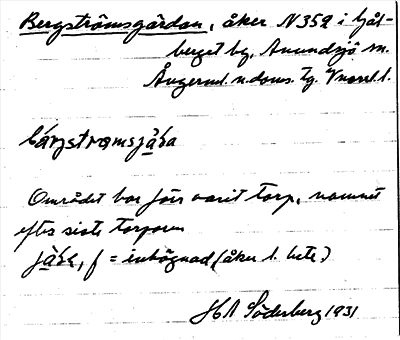 Bergströmsgärdan, åker N 359 i Gål-
berget bg, Anundsjö sn.
Ångerml. n. doms. tg. Vnorrl. l.
bárgstromsjä̀ḷa
Området har förr varit torp, namnet
efter siste torparen
f = inhägnad (åker l. bete)
HA Söderberg 1931